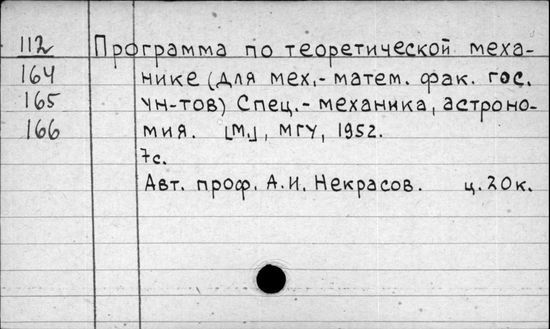 112 Программа по теоретической меха-
164 нике (для мех.- матем. фак. гос.
165 ун-тов) Спец.- механика, астроно-
166 мия. [М.], МГУ, 1952.
7с.
Авт. проф. А.И. Некрасов. ц. 20к.